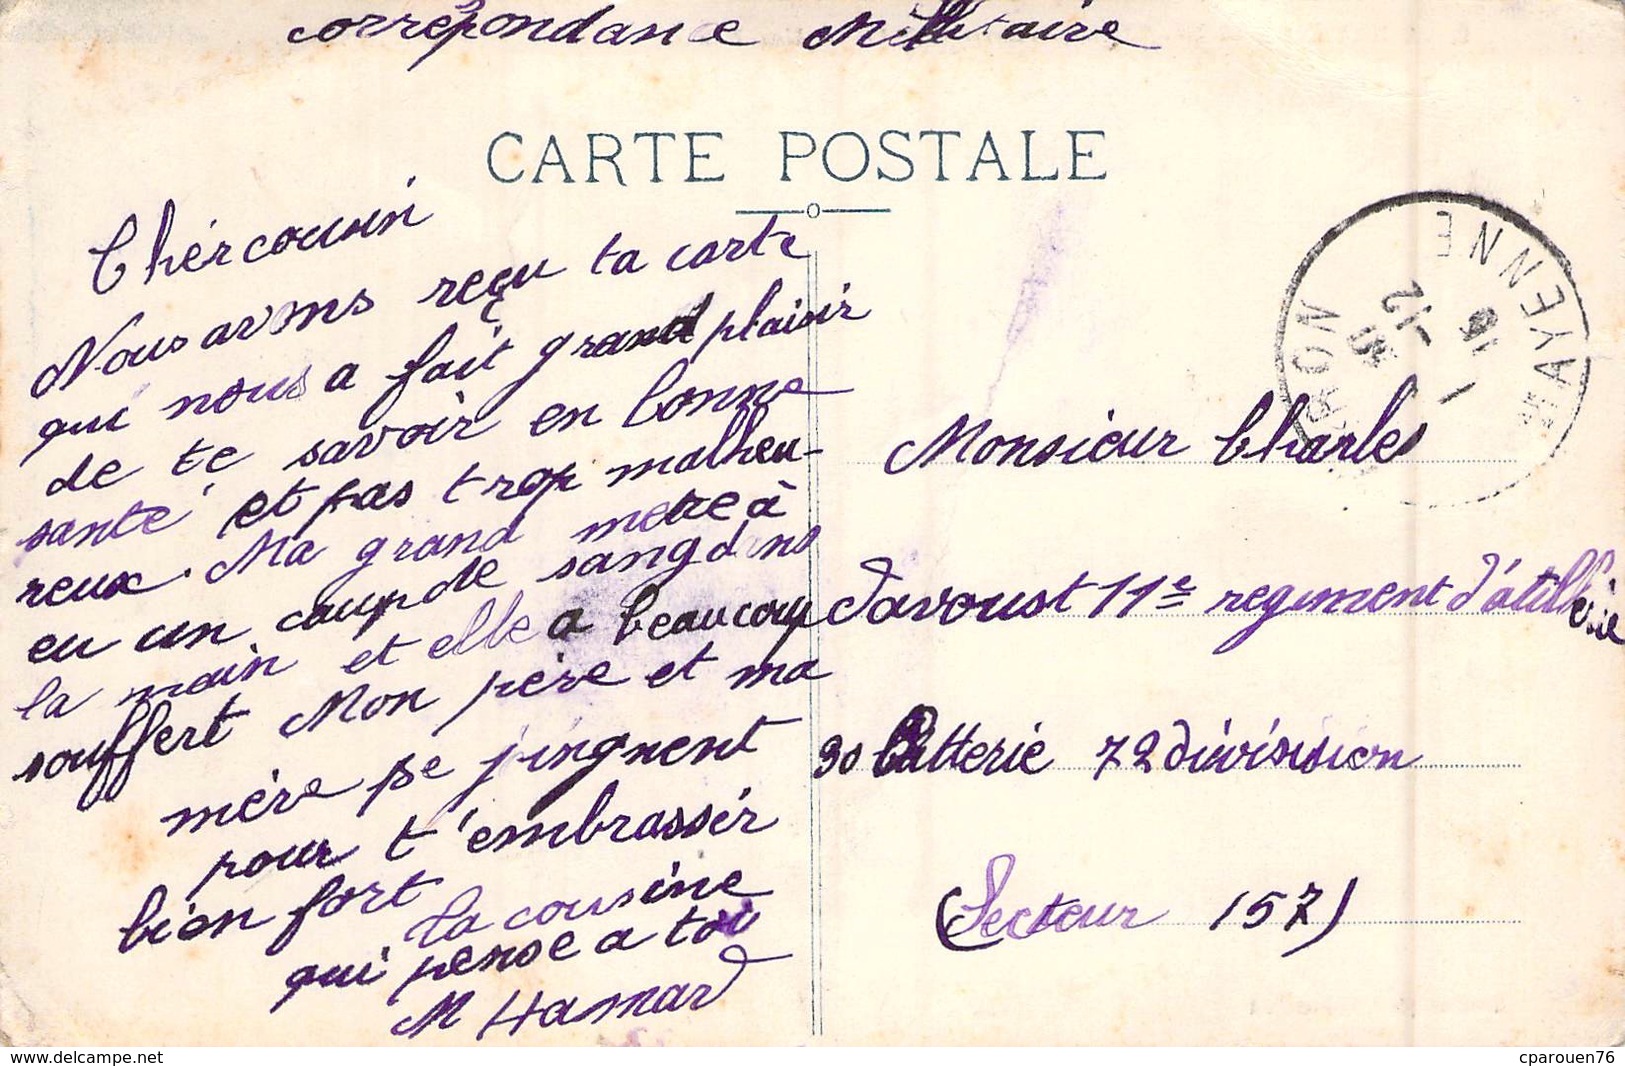 correpondance Militaire
CARTE POSTALE
Cher cousin
Nous avons reçu ta carte
qui nous a fait grand plaisir
de te savoir en bonne
santé et pas trop malheu-
reux. Ma grand mere à
eu un coup de sang dans
la main et elle a beaucoup
souffert Mon père et ma
mère se joingnent
pour t'embrasser
bien fort
ta cousine
qui pense a toi
M Hamard
MAYENNE
16
1 -12
15
Monsieur Charles
Davoust 11e regiment d'atillerie
30 Batterie 72 division
(Secteur 157)
www.delcampe.net
cparouen76